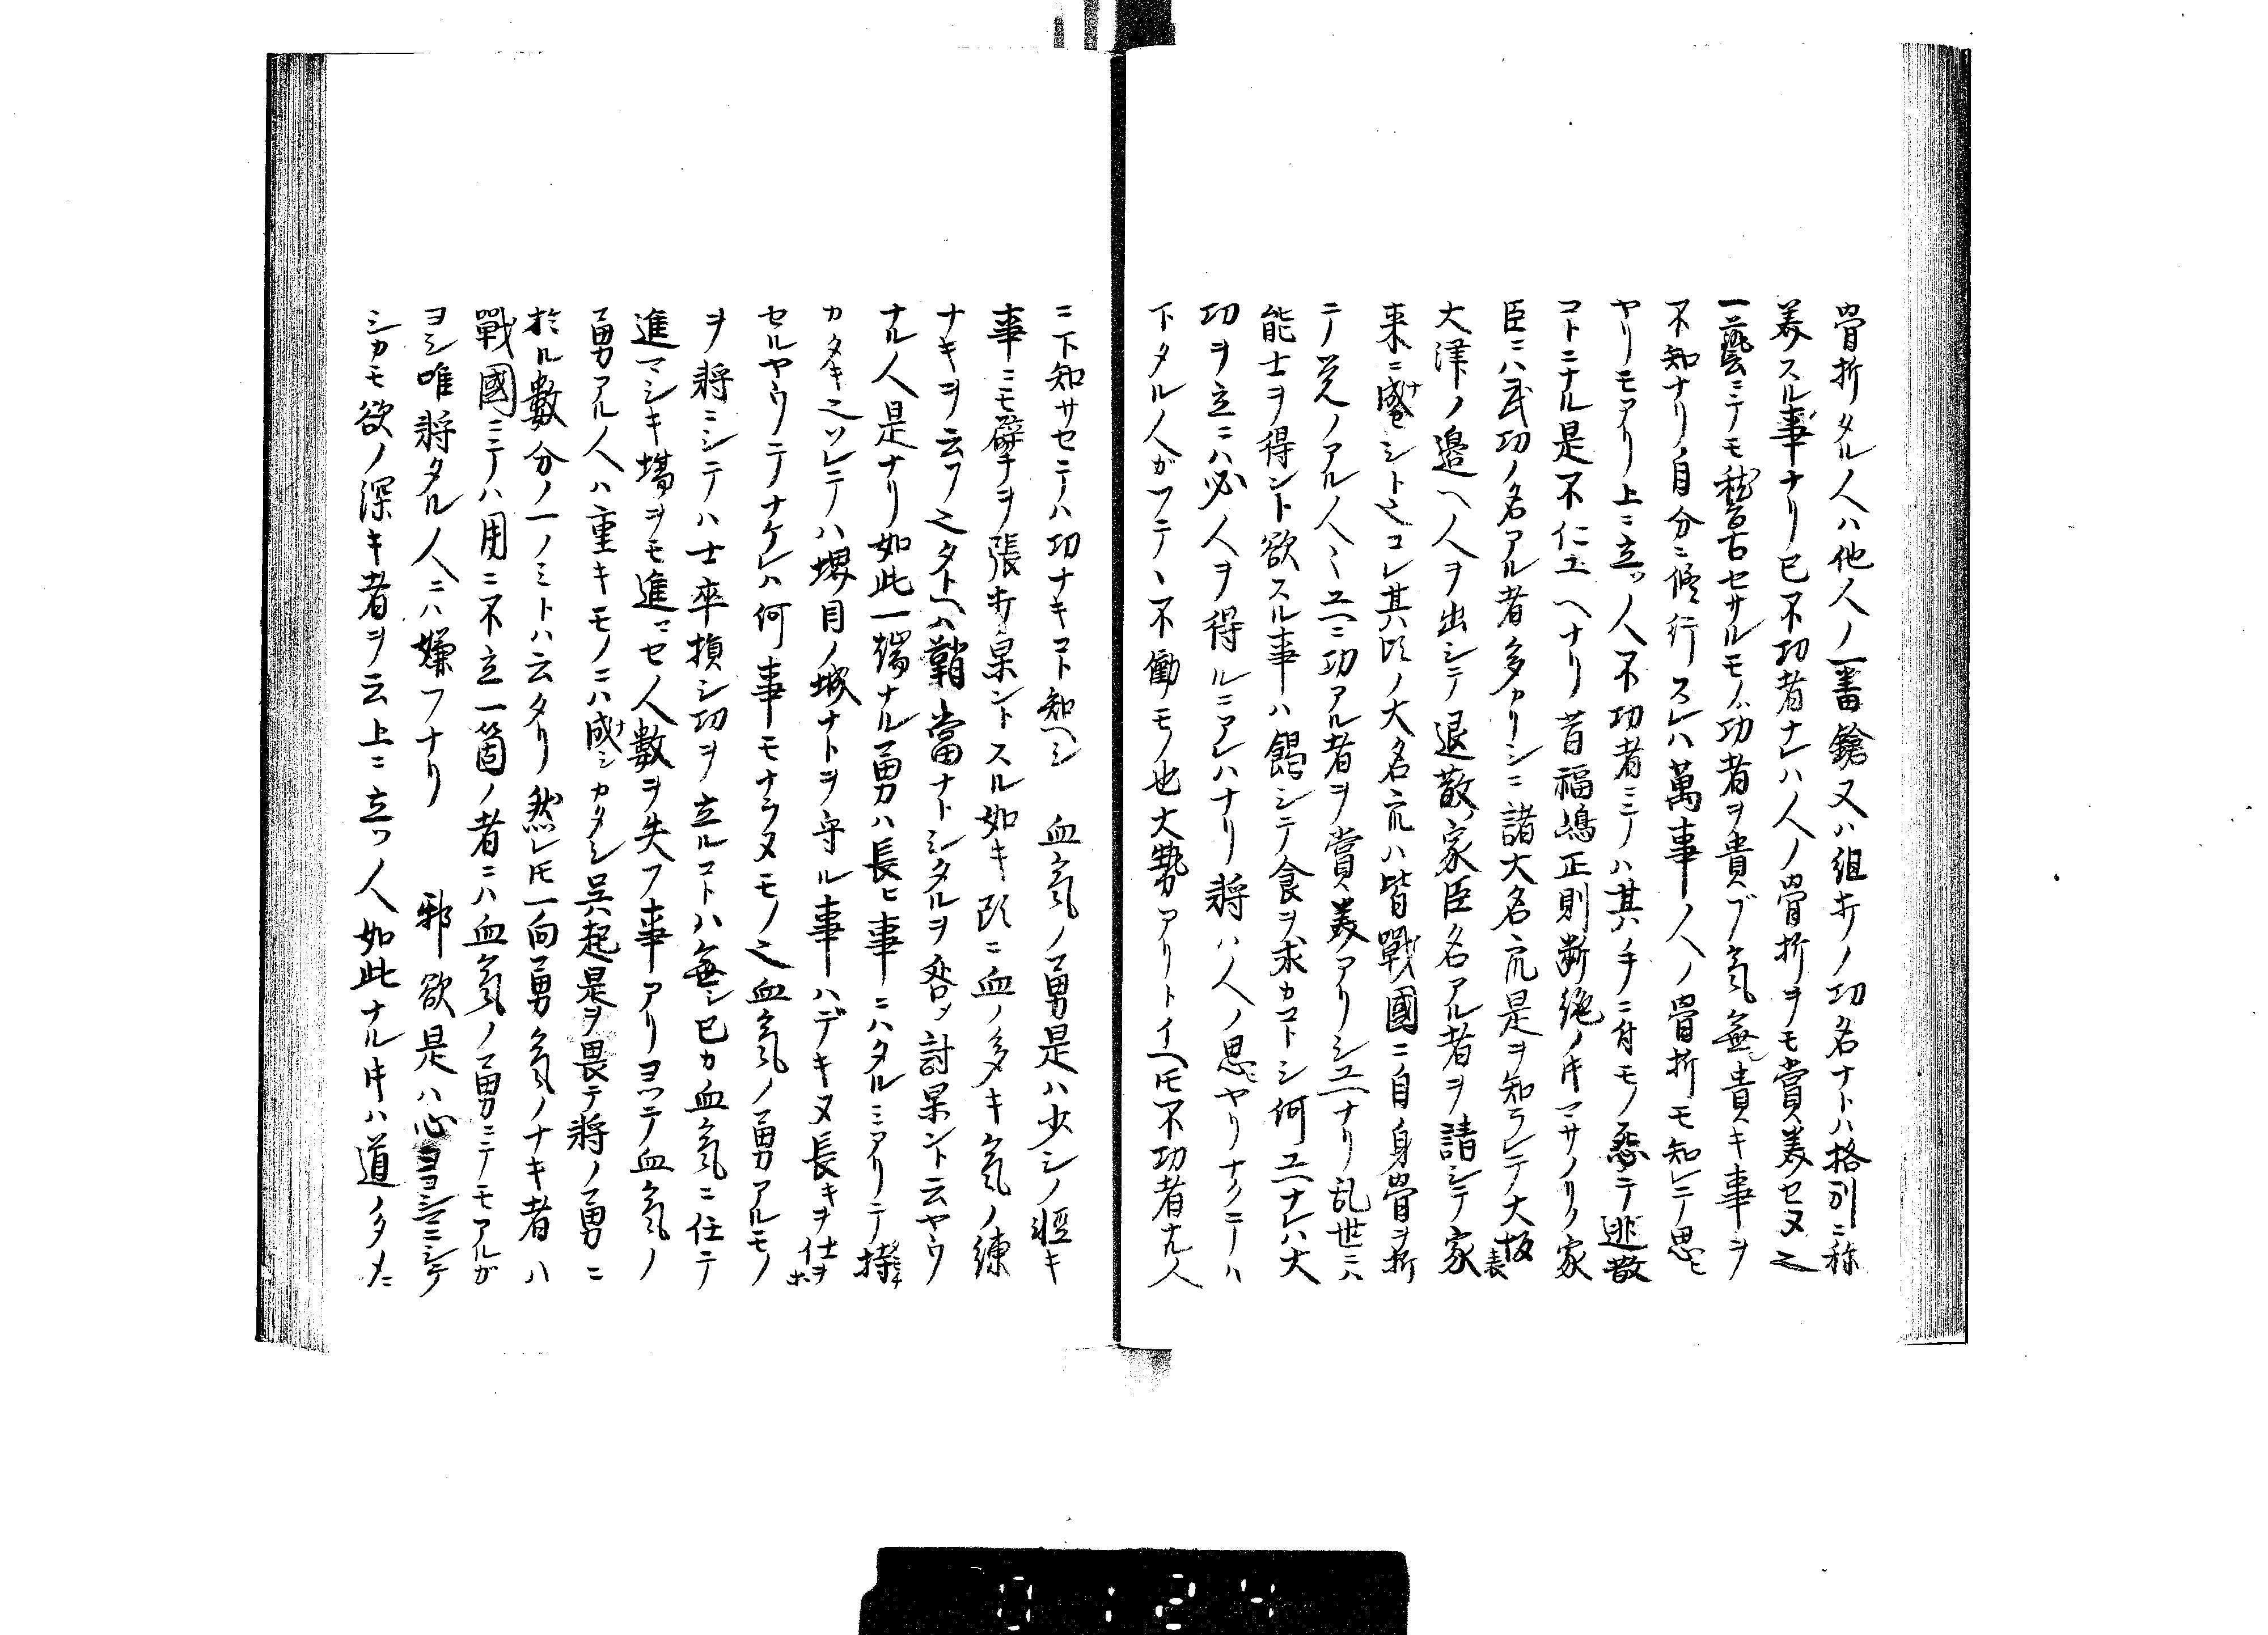 骨折タル人ハ他人ノ一番鎗又ハ組打ノ功名ナトハ格別ニ称
美スル事ナリ已不功者ナレハ人ノ骨折ヲモ賞美セヌ之
一藝ニテモ稽古セサルモノハ功者ヲ貴ブ氣無シ貴キ事ヲ
不知ナリ自分ニ修行スレハ萬事ノ人ノ骨折モ知レテ思ヒ
ヤリモアリ上ニ立ツ人不功者ニテハ其手ニ付モノ悉テ逃散
コトニナル是不仁ユヘナリ昔福嶋正則断絶ノ片マサノリノ家
臣ニハ武功ノ名アル者多カリシニ諸大名衆是ヲ知ラレテ大坂表
大津ノ邉ヘ人ヲ出シテ退散ノ家臣名アル者ヲ請シテ家
来ニ成セシト之コレ其比ノ大名衆ハ皆戰國ニ自身骨ヲ折
テ覚ノアル人〻ユヘニ功アル者ヲ賞美アリシユヘナリ乱世ニハ
能士ヲ得ント欲スル事ハ餲シテ食ヲ求カコトシ何ユヘナレハ大
功ヲ立ニハ必人ヲ得ルニアレハナリ将ハ人ノ思ヤリナクニテハ
下タルノ人ガフテ丶不働モノ也大勢アリトイヘ𪜈不功者ナ人
ニ下知サセテハ功ナキコト知ヘシ　血氣ノ勇是ハ少シノ軽キ
事ニモ臂ヲ張打果ントスル如キ頭ニ血ノ多キ氣ノ練
ナキヲ云フ之タトヘハ鞘當ナトシタルヲ咎ツ討果ント云ヤウ
ナル人是ナリ如此一端ナル勇ハ長ヒ事ニハタルミアリテ持
カタキ之ソレテハ堺目ノ城ナトヲ守ル事ハデキヌ長キヲ仕ヲホ
セルヤウテナケレハ何事モナラヌモノ之血氣ノ勇アルモノ
ヲ将ニシテハ士卒損シ功ヲ立ルコトハ無シ已カ血氣ニ任テ
進マシキ場ヲモ進マセ人數ヲ失フ事アリヨツテ血氣ノ
勇アル人ハ重キモノニハ成シカタシ呉起是ヲ畏テ将ノ勇ニ
於ル數分ノ一ノミトハ云タリ然レ𪜈一向勇氣ノナキ者ハ
戰國ニテハ用ニ不立一箇ノ者ニハ血氣ノ勇ニテモアルガ
ヨシ唯将タルノ人ニハ嫌フナリ　邪欲是ハ心ヨコシマニシテ
シカモ欲ノ深キ者ヲ云上ニ立ツ人如此ナル片ハ道ノタメニ
0124